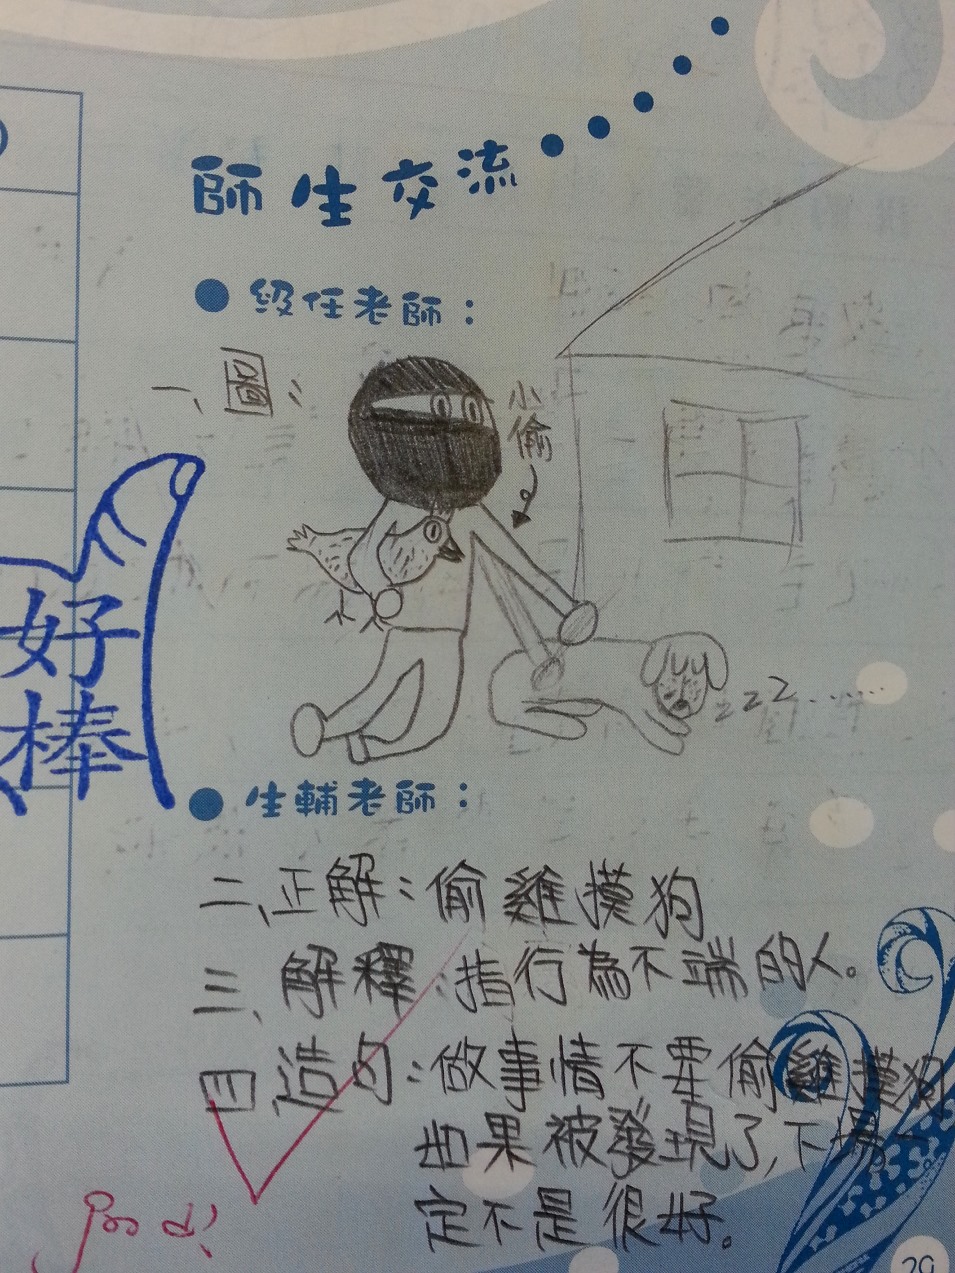 師生交流
級任老師：
一、圖：
小偷
zzz......
好棒
生輔老師：
二、正解：偷雞摸狗
三、解釋：指行為不端的人。
四、造句：做事情不要偷雞摸狗
如果被發現了，下場一
定不是很好。
good!
29